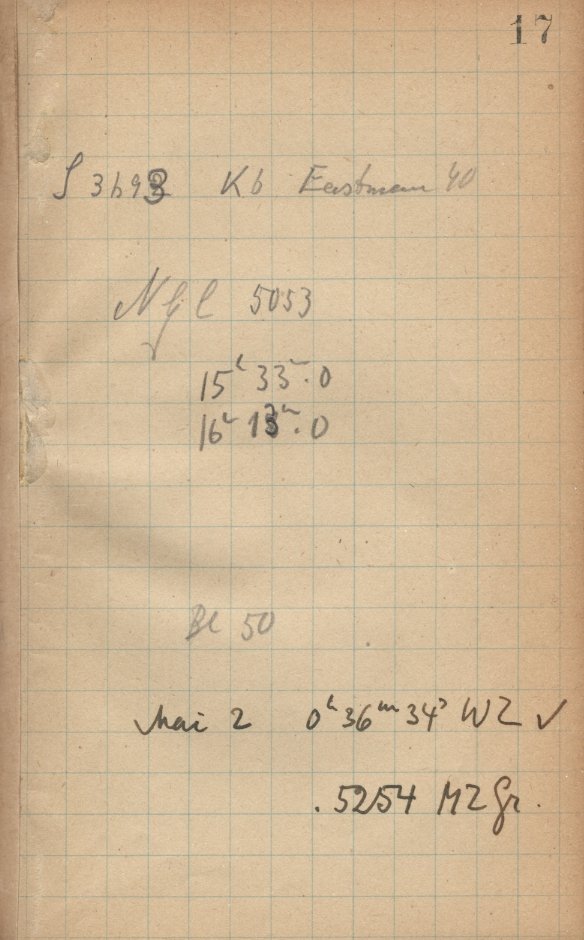 17
S 3693 Kb Eastman 40
NGC 5053
15ʰ 33ᵐ.0
16ʰ 13ᵐ.0
Bl 50
Mai 2 0ʰ 36ᵐ 34ˢ WZ ✓
.5254 MZ Gr.